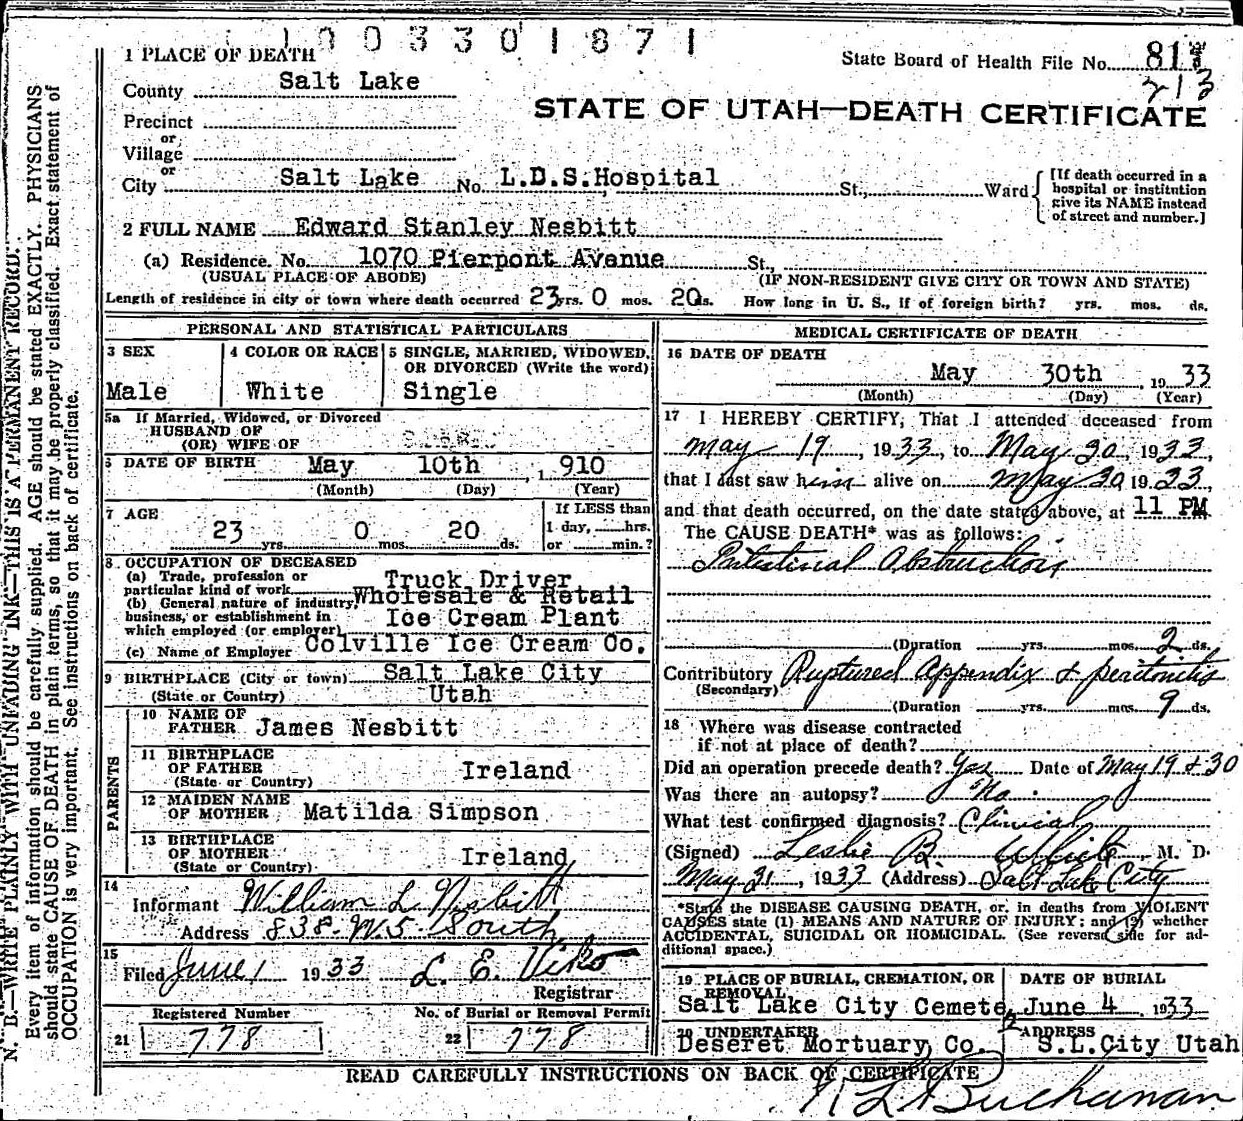 1003301871
1 PLACE OF DEATH
State Board of Health File No. 817
213
County Salt Lake
STATE OF UTAH—DEATH CERTIFICATE
Precinct
or
Village
or
City Salt Lake No. L.D.S. Hospital St., Ward
[If death occurred in a
hospital or institution
give its NAME instead
of street and number.]
2 FULL NAME Edward Stanley Nesbitt
(a) Residence. No. 1070 Pierpont Avenue St.,
(USUAL PLACE OF ABODE) (IF NON-RESIDENT GIVE CITY OR TOWN AND STATE)
Length of residence in city or town where death occurred 23 yrs. 0 mos. 20 ds. How long in U. S., if of foreign birth? yrs. mos. ds.
PERSONAL AND STATISTICAL PARTICULARS
3 SEX
Male
4 COLOR OR RACE
White
5 SINGLE, MARRIED, WIDOWED,
OR DIVORCED (Write the word)
Single
5a If Married, Widowed, or Divorced
HUSBAND OF
(OR) WIFE OF
6 DATE OF BIRTH May 10th, 1910
(Month) (Day) (Year)
7 AGE
23 yrs. 0 mos. 20 ds.
If LESS than
1 day, hrs.
or min.?
8 OCCUPATION OF DECEASED
(a) Trade, profession or
particular kind of work Truck Driver
(b) General nature of industry, Wholesale & Retail
business, or establishment in Ice Cream Plant
which employed (or employer)
(c) Name of Employer Colville Ice Cream Co.
9 BIRTHPLACE (City or town) Salt Lake City
(State or Country) Utah
PARENTS
10 NAME OF
FATHER James Nesbitt
11 BIRTHPLACE
OF FATHER Ireland
(State or Country)
12 MAIDEN NAME
OF MOTHER Matilda Simpson
13 BIRTHPLACE
OF MOTHER Ireland
(State or Country)
14
Informant William L. Nesbitt
Address 838 W 5 South
15
Filed June 1 1933 L. E. Viko
Registrar
Registered Number
21 778
No. of Burial or Removal Permit
22 778
MEDICAL CERTIFICATE OF DEATH
16 DATE OF DEATH
May 30th, 1933
(Month) (Day) (Year)
17 I HEREBY CERTIFY, That I attended deceased from
May 19, 1933, to May 30, 1933,
that I last saw him alive on May 30 1933,
and that death occurred, on the date stated above, at 11 PM
The CAUSE DEATH* was as follows:
Intestinal Obstruction
(Duration yrs. mos. 2 ds.
Contributory Ruptured Appendix & peritonitis
(Secondary)
(Duration yrs. mos. 9 ds.
18 Where was disease contracted
if not at place of death?
Did an operation precede death? Yes Date of May 19 & 30
Was there an autopsy? No
What test confirmed diagnosis? Clinical
(Signed) Leslie B. White, M. D.
May 31, 1933 (Address) Salt Lake City
*State the DISEASE CAUSING DEATH, or, in deaths from VIOLENT
CAUSES state (1) MEANS AND NATURE OF INJURY; and (2) whether
ACCIDENTAL, SUICIDAL OR HOMICIDAL. (See reverse side for ad-
ditional space.)
19 PLACE OF BURIAL, CREMATION, OR
REMOVAL
Salt Lake City Cemete
DATE OF BURIAL
June 4 1933
20 UNDERTAKER
Deseret Mortuary Co.
ADDRESS
S.L.City Utah
READ CAREFULLY INSTRUCTIONS ON BACK OF CERTIFICATE
Buchanan
N. B.—WRITE PLAINLY WITH UNFADING INK—THIS IS A PERMANENT RECORD.
Every item of information should be carefully supplied. AGE should be stated EXACTLY. PHYSICIANS
should state CAUSE OF DEATH in plain terms, so that it may be properly classified. Exact statement of
OCCUPATION is very important. See instructions on back of certificate.